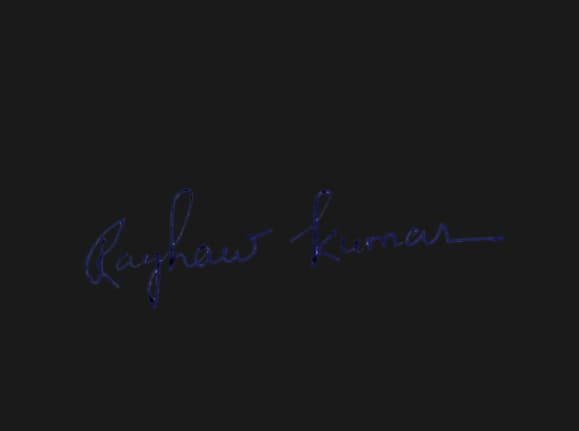 Rayhaw Kumar